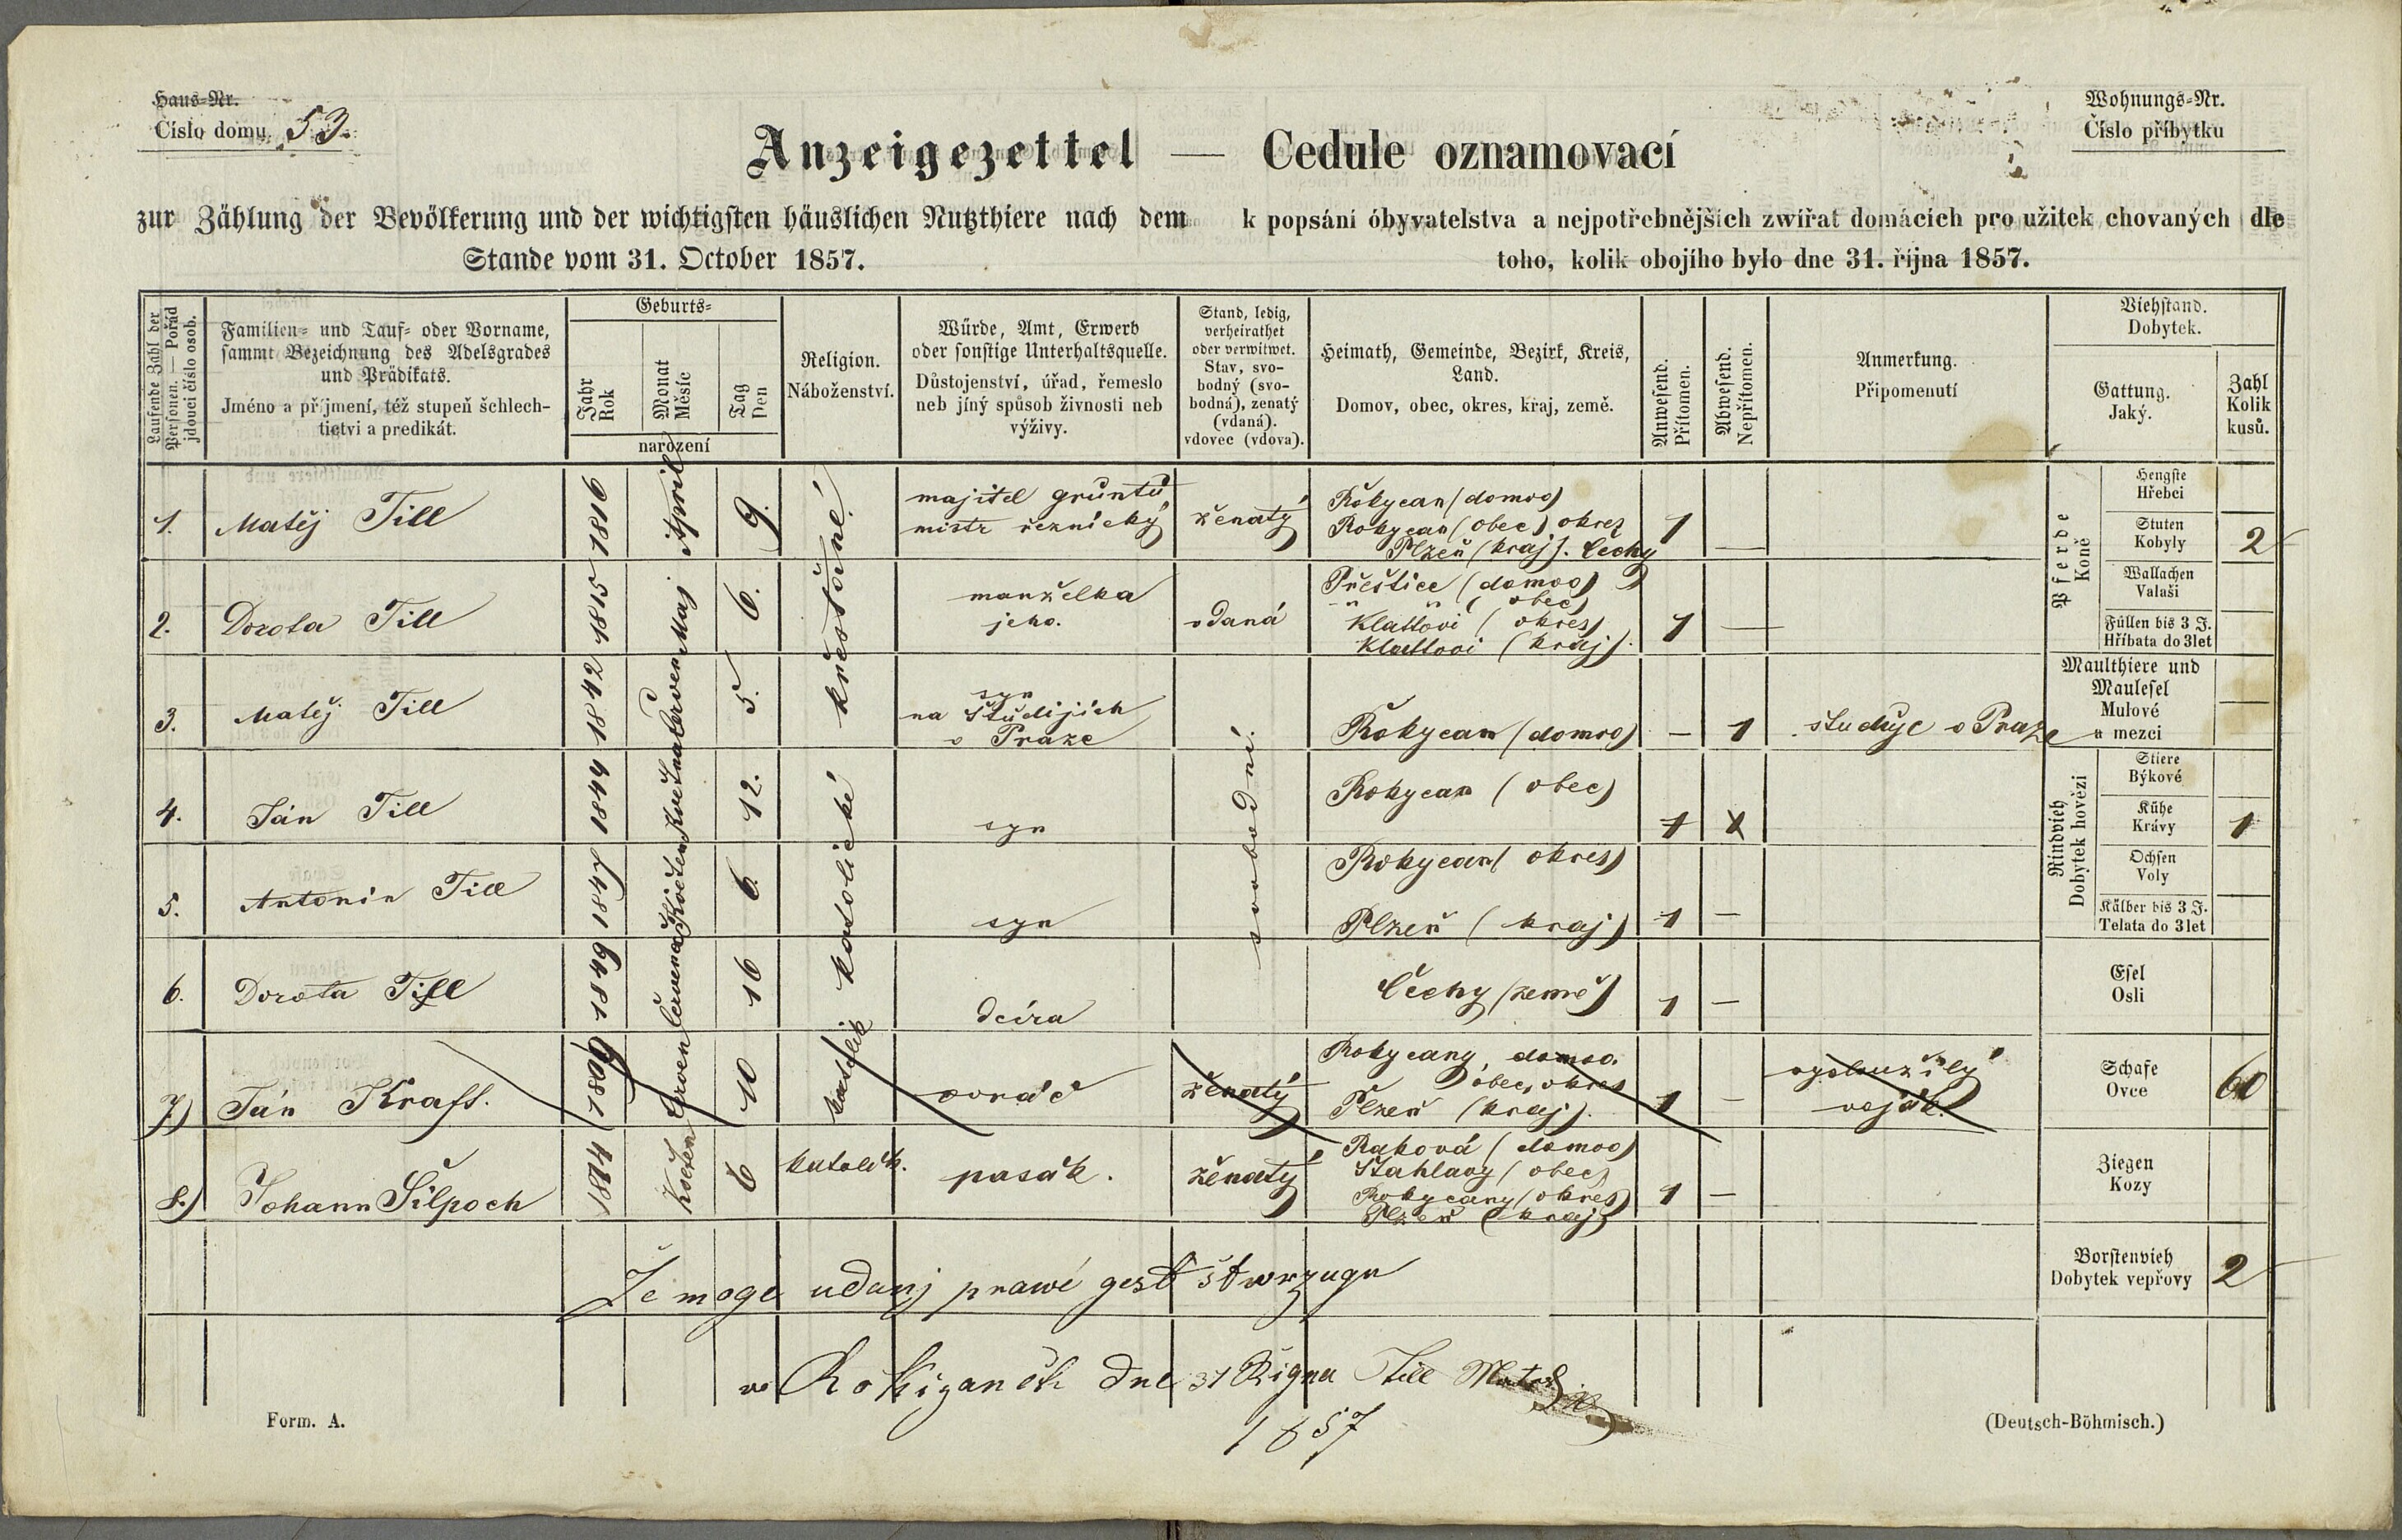 Haus-Nr.
Číslo domu. 53.
Wohnungs-Nr.
Číslo příbytku
Anzeigezettel — Cedule oznamovací
zur Zählung der Bevölkerung und der wichtigsten häuslichen Nutzthiere nach dem
Stande vom 31. October 1857.
k popsání óbyvatelstva a nejpotřebnějších zwířat domácích pro užitek chovaných dle
toho, kolik obojího bylo dne 31. října 1857.
Laufende Zahl der
Personen. — Pořád
jdoucí číslo osob.
Familien- und Tauf- oder Vorname,
sammt Bezeichnung des Adelsgrades
und Prädikats.
Jméno a příjmení, též stupeň šchlech-
tictvi a predikát.
Geburts-
Jahr
Rok
Monat
Měsíc
Tag
Den
narození
Religion.
Náboženství.
Würde, Amt, Erwerb
oder sonstige Unterhaltsquelle.
Důstojenství, úřad, řemeslo
neb jíný spůsob živnosti neb
výživy.
Stand, ledig,
verheirathet
oder verwitwet.
Stav, svo-
bodný (svo-
bodná), zenatý
(vdaná).
vdovec (vdova).
Heimath, Gemeinde, Bezirk, Kreis,
Land.
Domov, obec, okres, kraj, země.
Anwesend.
Přítomen.
Abwesend.
Nepřítomen.
Anmerkung.
Připomenutí
Viehstand.
Dobytek.
Gattung.
Jaký.
Zahl
Kolik
kusů.
1. Matěj Till 1816 April 9. majitel gruntu
mistr řeznický ženatý Rokycan (domov)
Rokycan (obec) okres
Plzeň (kraj). Čechy 1 —
2. Dorota Till 1815 Maj 6. manželka
jeho. vdaná Přeštice (domov)
" " (obec)
Klattovi (okres)
Klattovi (kraj). 1 —
křesťansé
3. Matěj Till 1842 Červen 5. syn
na študijích
v Praze Rokycan (domov) — 1 studuje v Praze
4. Ján Till 1844 Května 12. syn Rokycan (obec) 1 1
katolické
svobodní.
5. Antonin Till 1847 Květen 6. syn Rokycan (okres)
Plzeň (kraj) 1 —
6. Dorota Till 1849 Červena 16 dcíra Čechy (země) 1 —
7) Ján Kraft. 1809 Červen 10 katolik ženatý Rokycany domov.
obec, okres
Plzeň (kraj). 1 — vysloužilý
voják.
8.) Johann Šilpoch Květen 6 katolík. pasák. ženatý Raková (domov)
Štahlavy (obec)
Rokycany (okres)
Plzeň (kraj) 1 —
Že moge udanj prawé gest stwrzugu
w Rokizanech dne 31 Řigna Till
1857
Pferde
Koně
Hengste
Hřebci
Stuten
Kobyly 2
Wallachen
Valaši
Füllen bis 3 J.
Hříbata do 3 let
Maulthiere und
Maulesel
Mulové
a mezci
Rindvieh
Dobytek hovězi
Stiere
Býkové
Kühe
Krávy 1
Ochsen
Voly
Kälber bis 3 J.
Telata do 3 let
Esel
Osli
Schafe
Ovce 60
Ziegen
Kozy
Borstenvieh
Dobytek vepřovy 2
Form. A.
(Deutsch-Böhmisch.)